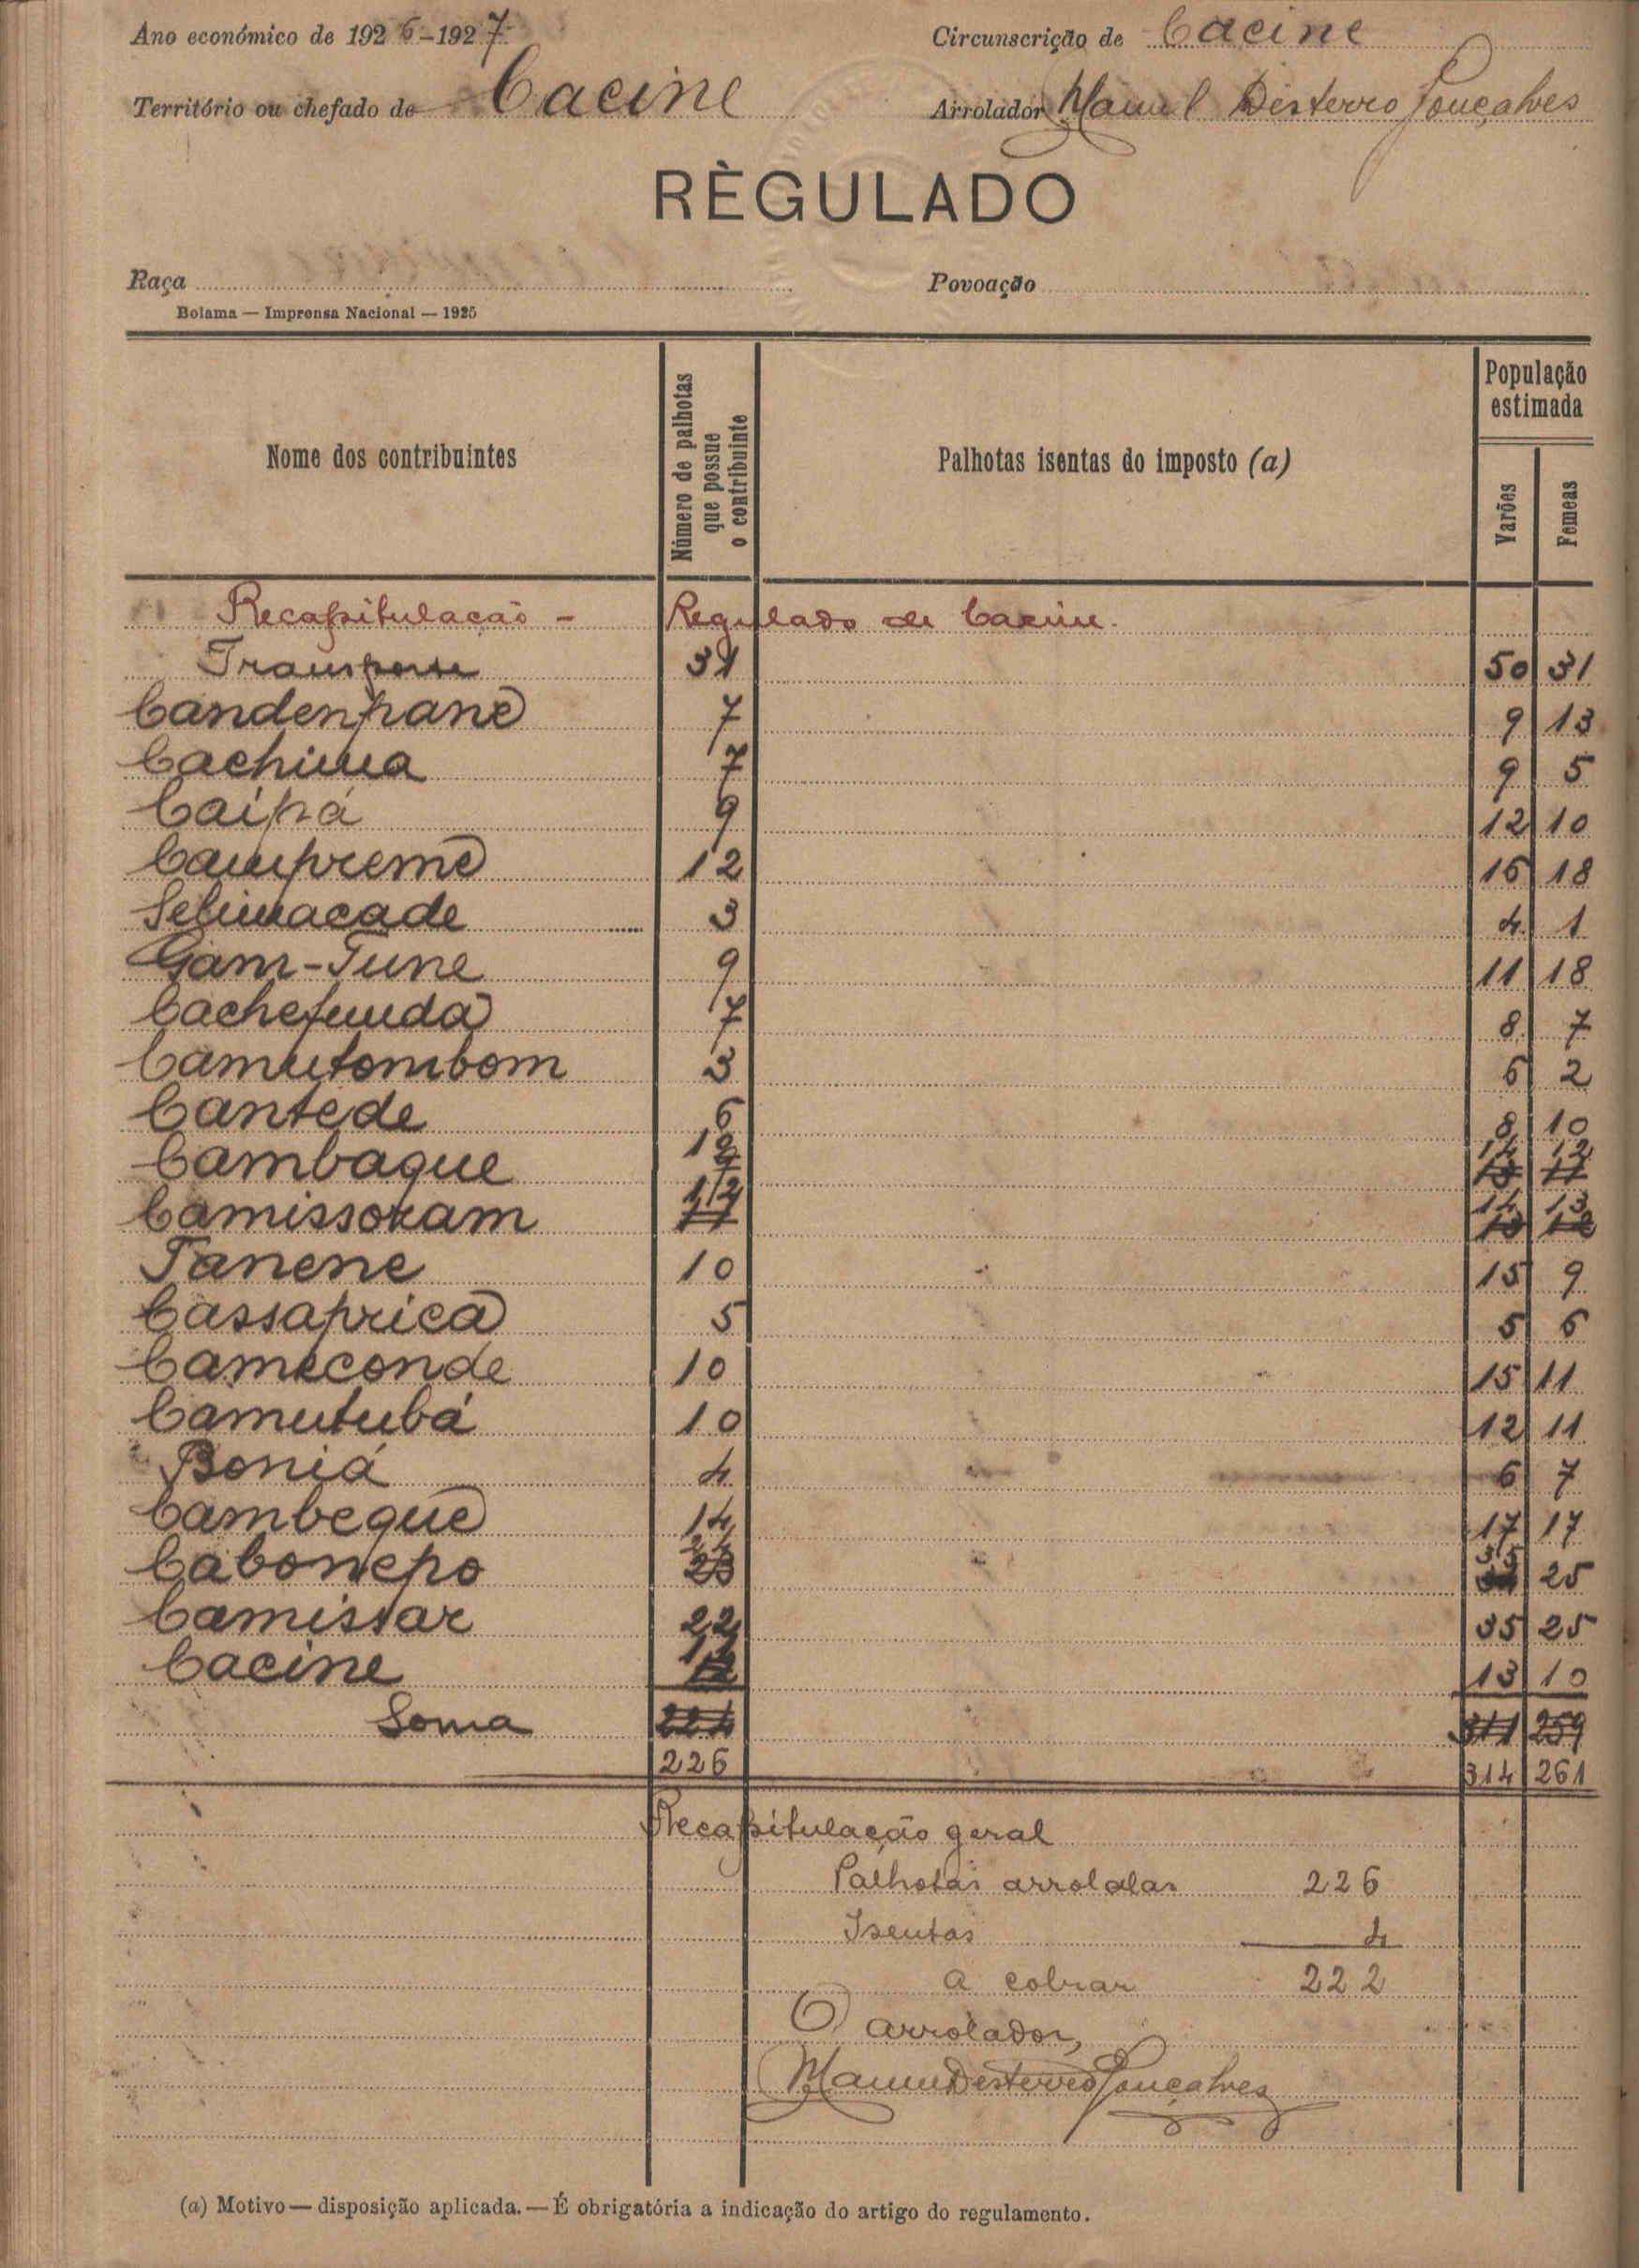 Ano económico de 1926-1927 Circunscrição de Cacine
Território ou chefado de Cacine Arrolador Manuel Desterro Gonçalves
RÈGULADO
Raça Povoação
Bolama — Imprensa Nacional — 1925
Nome dos contribuintes Número de palhotas que possue o contribuinte Palhotas isentas do imposto (a) População estimada Varões Femeas
Recapitulacão - Regulado de Cacine.
Transporte 31 50 31
Candenpane 7 9 13
Cachima 7 9 5
Caípá 9 12 10
Campreme 12 15 18
Selimacade 3 4 1
Gam-Tune 9 11 18
Cachefunda 7 8 7
Camutombom 3 6 2
Cantede 6 8 10
Cambaque 12 14 12
Camissoram 12 14 13
Tanene 10 15 9
Cassaprica 5 5 6
Cameconde 10 15 11
Camutubá 10 12 11
Boniá 4 6 7
Cambeque 14 17 17
Cabonepo 23 35 25
Camissar 22 35 25
Cacine 13 10
Soma 224 311 259
226 314 261
Recapitulação geral
Palhotas arroladas 226
Isentas 4
a cobrar 222
O arrolador,
Manuel Desterro Gonçalves
(a) Motivo — disposição aplicada. — É obrigatória a indicação do artigo do regulamento.